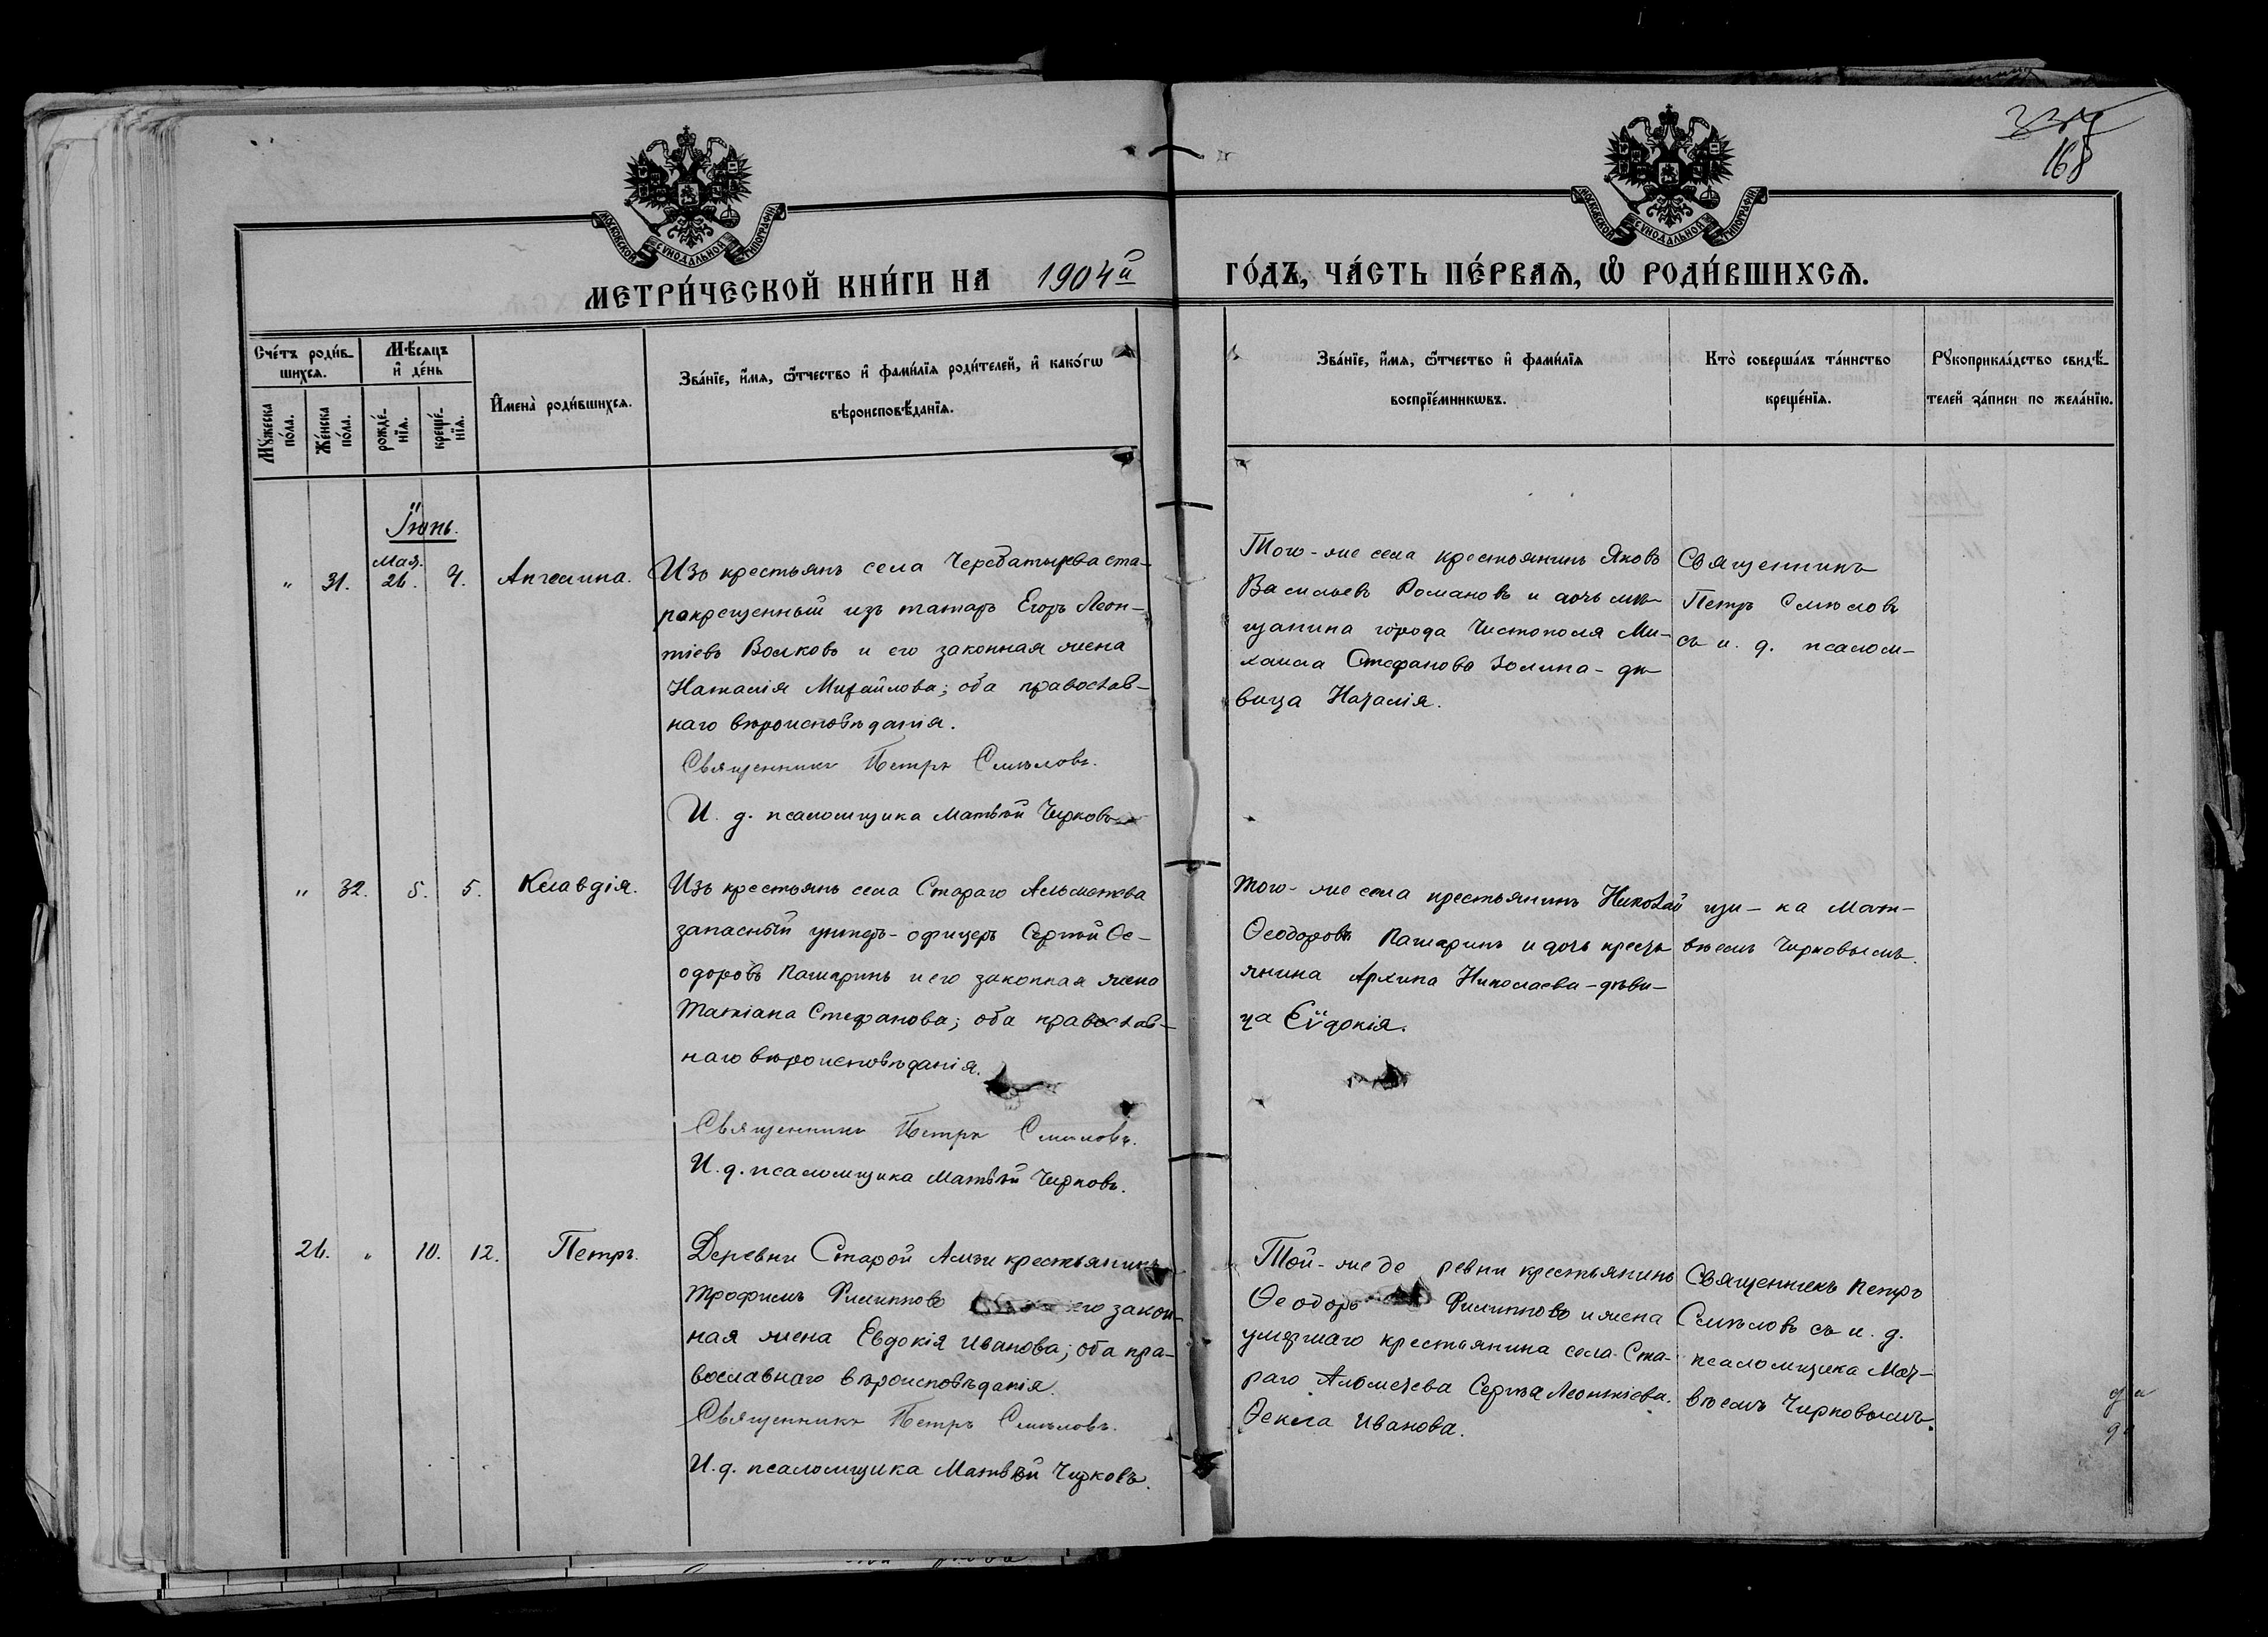 168
МОСКОВСКОЙ СѴНОДАЛЬНОЙ ТИПОГРАФІИ
МОСКОВСКОЙ СѴНОДАЛЬНОЙ ТИПОГРАФІИ
МЕТРИ́ЧЕСКОЙ КНИ́ГИ НА 1904й ГО́ДЪ, ЧА́СТЬ ПЕ́РВАѦ, Ѡ҆ РОДИ́ВШИХСѦ.
Сче́тъ роди́в-
шихсѧ.
Мꙋжеска
по́ла.
Же́нска
по́ла.
Мѣ́сѧцъ
и҆ де́нь
рожде́-
нїѧ.
креще́-
нїѧ.
И҆мена̀ роди́вшихсѧ.
Зва́нїе, и҆́мѧ, ѻ҆́тчество и҆ фами́лїѧ роди́телей, и҆ како́гѡ
вѣроисповѣ́данїѧ.
Зва́нїе, и҆́мѧ, ѻ҆́тчество и҆ фами́лїѧ
воспрїе́мникѡвъ.
Кто̀ соверша́лъ та́инство
креще́нїѧ.
Рꙋкоприкла́дство свидѣ́-
телей за́писи по жела́нїю.
Іюнь.
" 31. Мая. 26. 4. Ангелина.
Изъ крестьянъ села Черебатырева ста-
рокрещенный изъ татаръ Егоръ Леон-
тіевъ Волковъ и его законная жена
Наталія Михайлова; оба православ-
наго вѣроисповѣданія.
Священникъ Петръ Смѣловъ.
И. д. псаломщика Матвѣй Чирковъ
Того-же села крестьянинъ Яковъ
Васильевъ Романовъ и дочь мѣ-
щанина города Чистополя Ми-
хаила Стефанова Золина - дѣ-
вица Наталія.
Священникъ
Петръ Смѣловъ
съ и. д. псалом-
" 32. 5. 5. Клавдія.
Изъ крестьянъ села Стараго Альметева
запасный унтеръ-офицеръ Сергѣй Ѳе-
одоровъ Пашаринъ и его законная жена
Татіана Стефанова; оба православ-
наго вѣроисповѣданія.
Священникъ Петръ Смѣловъ.
И. д. псаломщика Матвѣй Чирковъ.
Того-же села крестьянинъ Николай
Ѳеодоровъ Пашаринъ и дочь кресть
янина Архипа Николаева - дѣви-
ца Еѵдокія.
щи-ка Мат-
вѣемъ Чирковымъ.
26. " 10. 12. Петръ.
Деревни Старой Амзи крестьянинъ
Трофимъ Филипповъ его закон-
ная жена Евдокія Иванова; оба пра-
вославнаго вѣроисповѣданія.
Священникъ Петръ Смѣловъ.
И. д. псаломщика Матвѣй Чирковъ.
Той-же де ревни крестьянинъ
Ѳеодоръ Филипповъ и жена
умершаго крестьянина села Ста-
раго Альметева Сергѣя Леонтіева.
Ѳекла Иванова.
Священникъ Петръ
Смѣловъ съ и. д.
псаломщика Мат-
вѣемъ Чирковымъ.